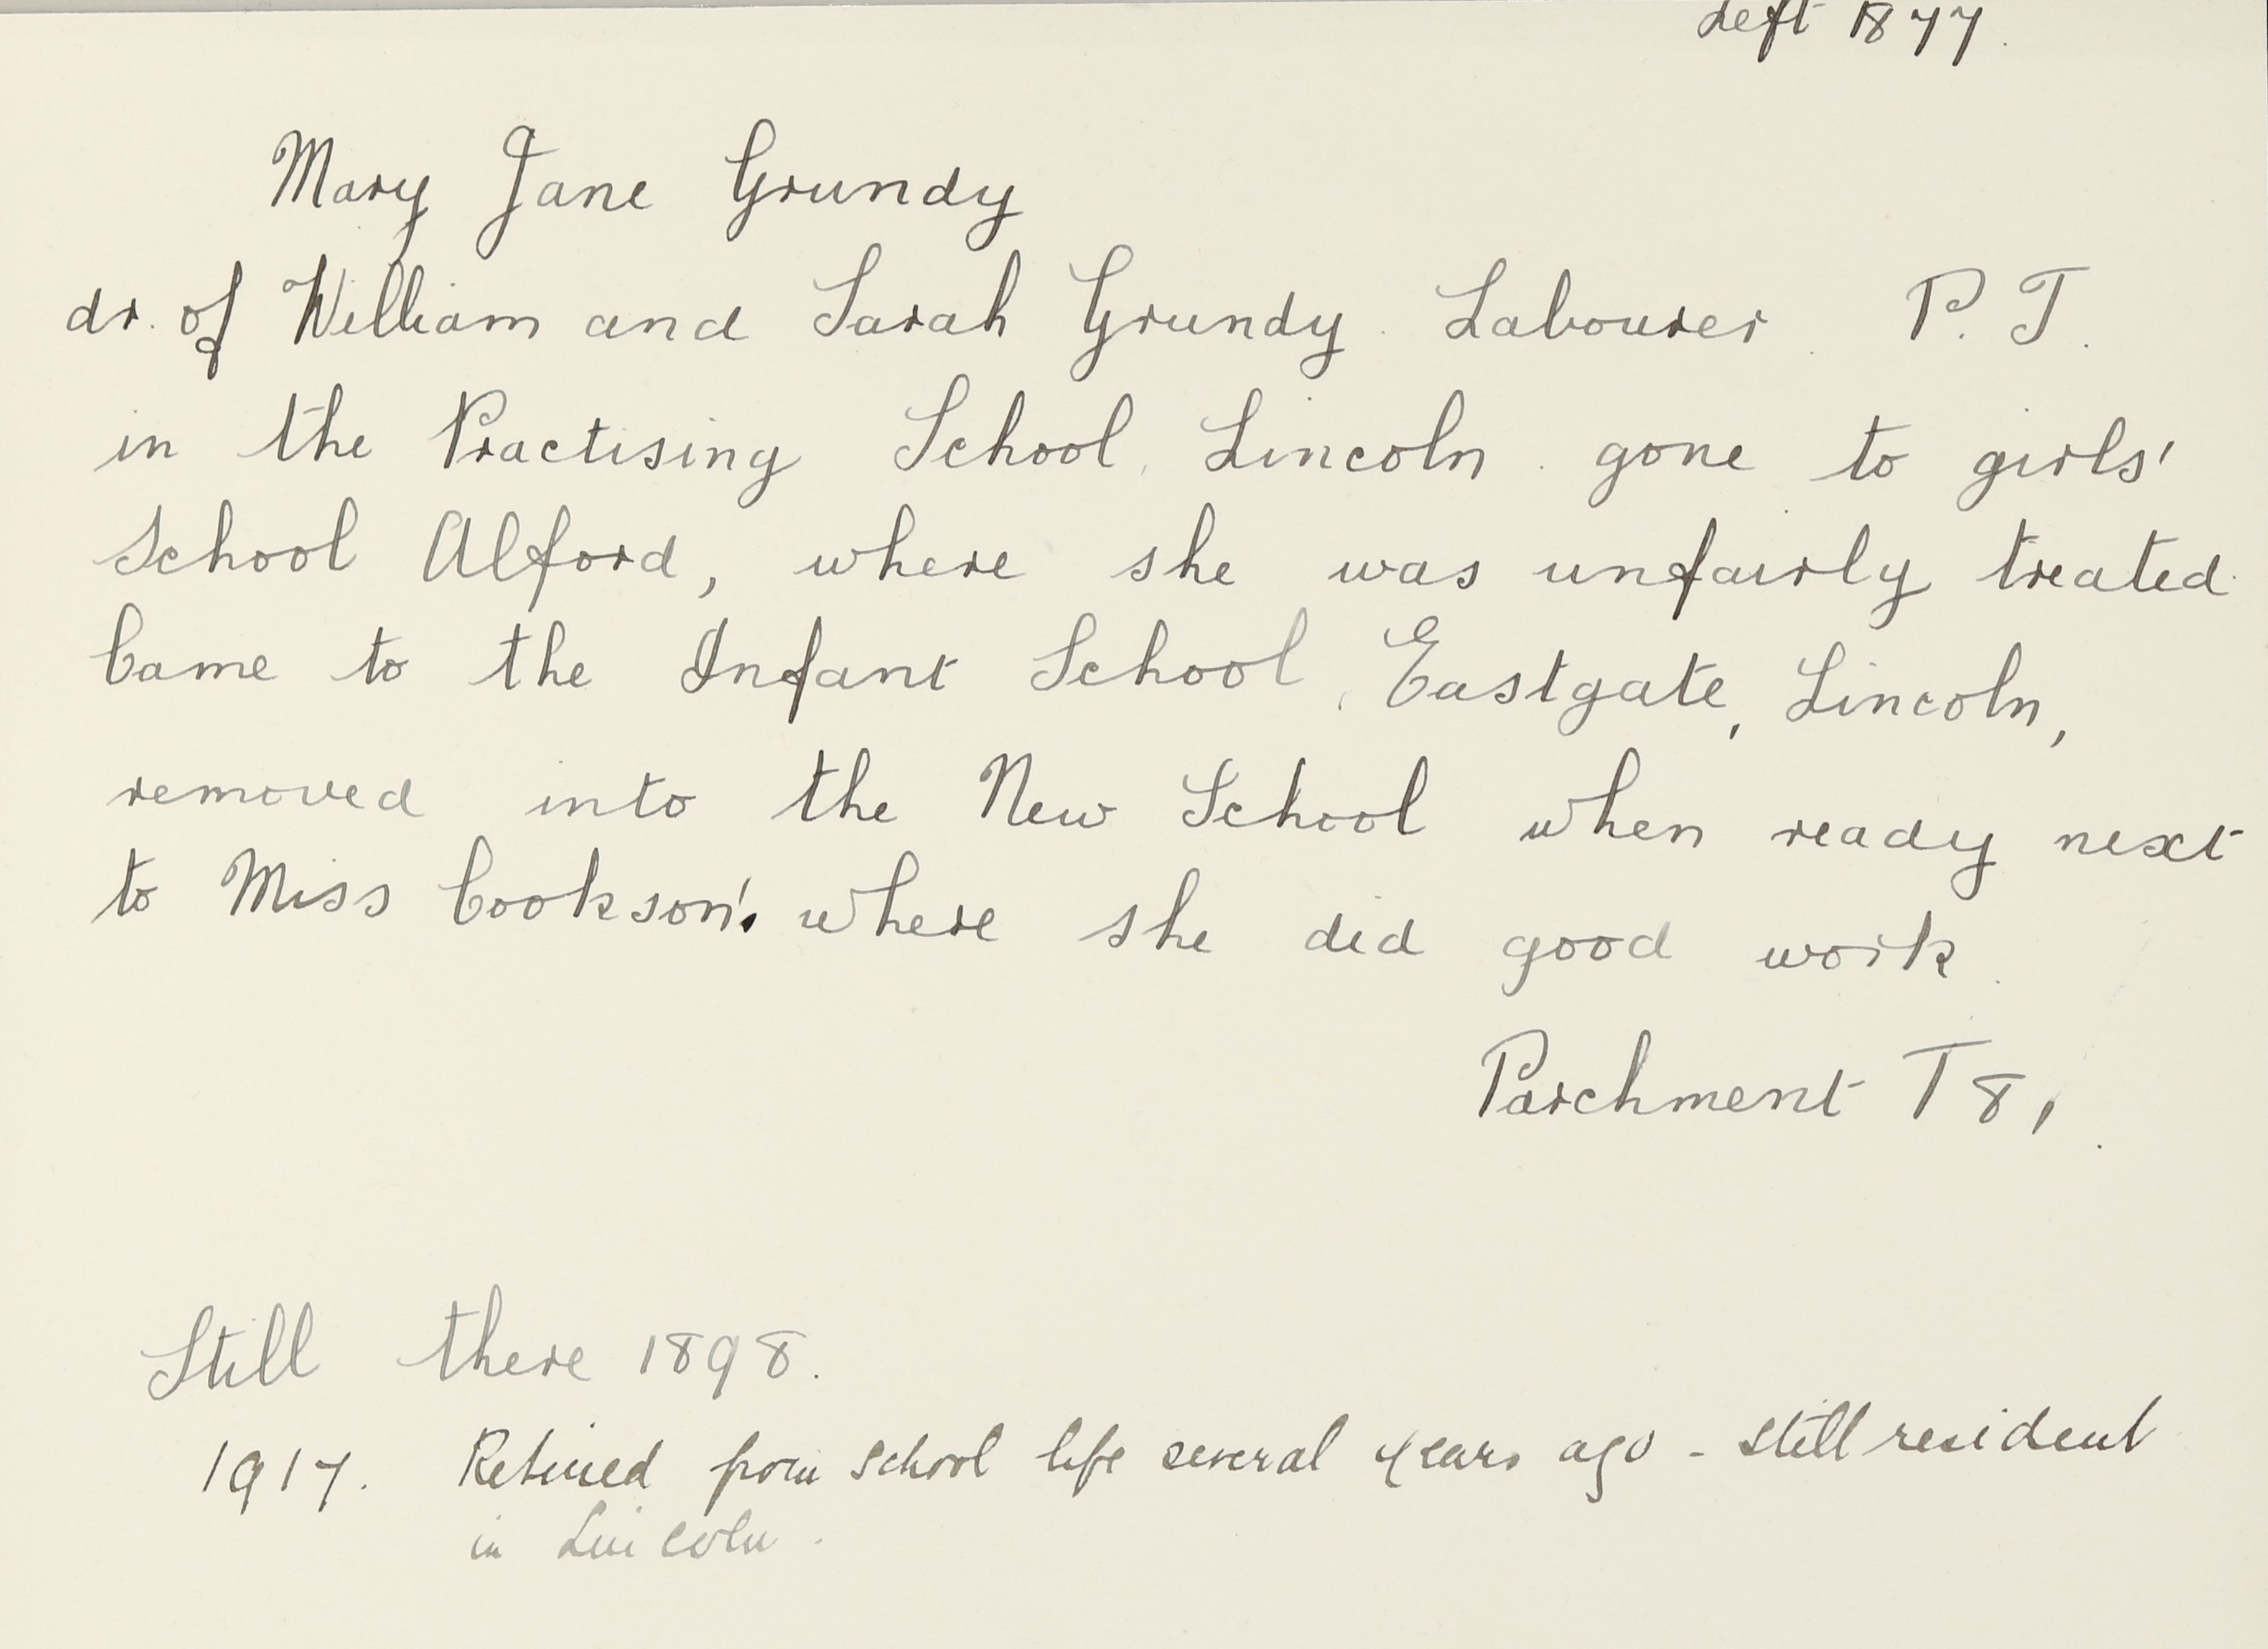 Left 1877.
Mary Jane Grundy
dr. of William and Sarah Grundy. Labourer. P. T.
in the Practising School, Lincoln. gone to girls'
School Alford, where she was unfairly treated.
Came to the Infant School, Eastgate, Lincoln,
removed into the New School when ready next
to Miss Cookson's where she did good work.
Parchment T 8,
Still there 1898.
1917. Retired from school life several years ago - still resident
in Lincoln.